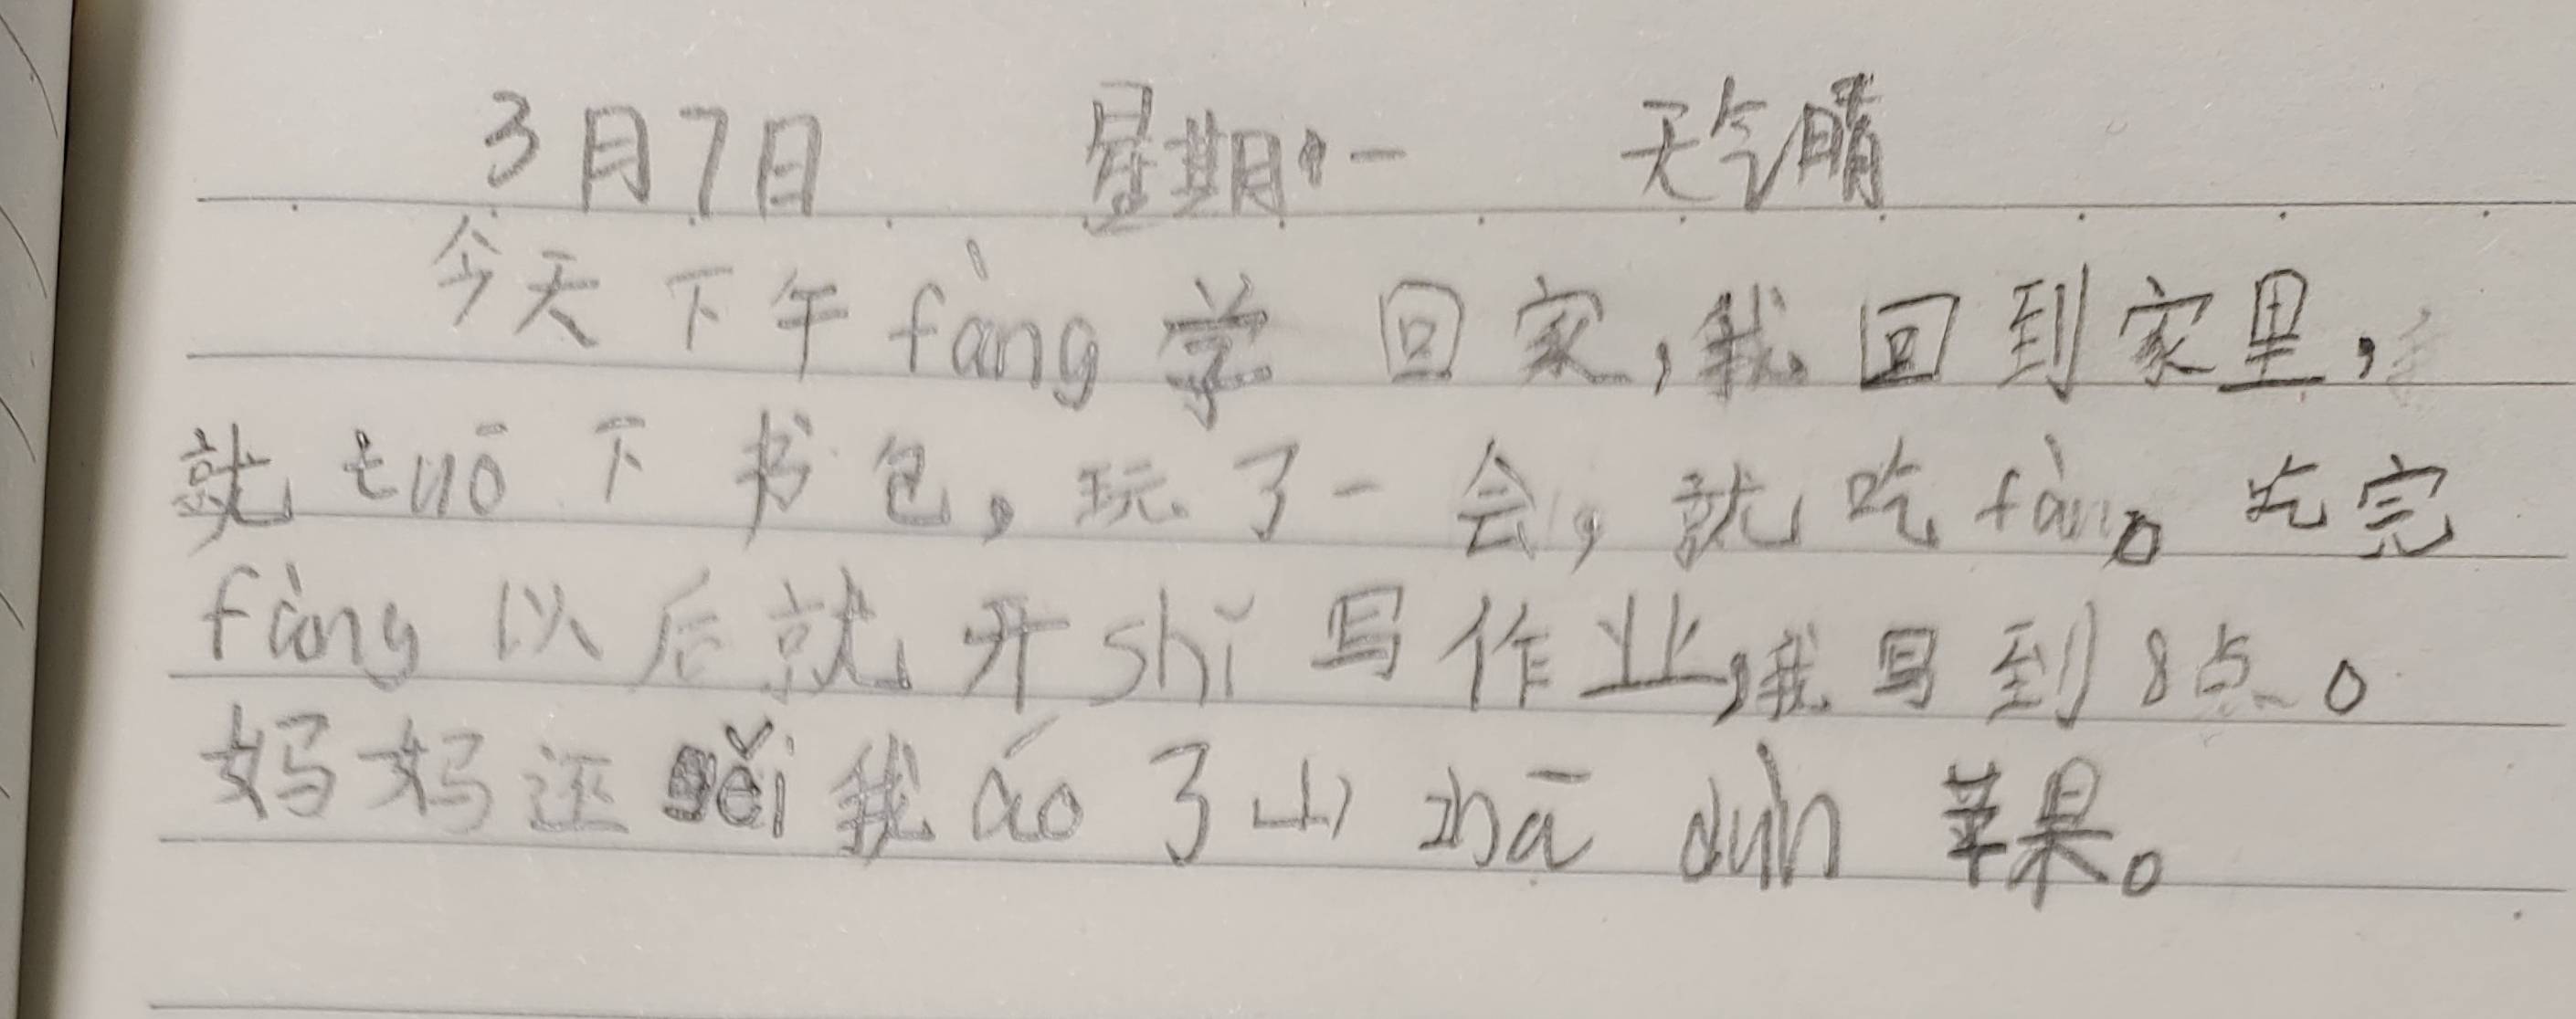 3月7日 星期一 天气晴
今天下午fàng学 回家,我回到家里,
就tuō下书包,玩了一会,就吃fàn。吃完
fàng以后就开shǐ写作业,我写到8点。
妈妈还gěi我áo了山zhā dùn 苹果。